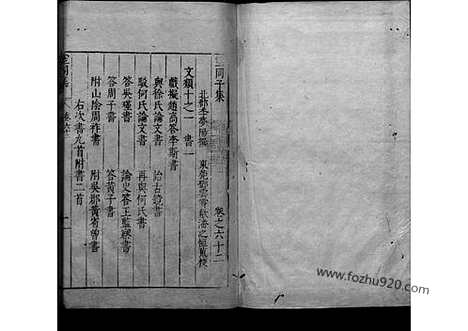 空同子集 卷之六十二
北郡李夢陽撰 東莞鄧雲霄
文類十之一 書一
戲擬趙高答李斯書
與徐氏論文書 結古鏡書
駁何氏論文書 再與何氏書
答吳謹書 論史答王監察書
答周子書 答黃子書
附山陰周祚書 附吳郡黃省曾書
右次書九首附書二首
空同集
www.fozhu920.com